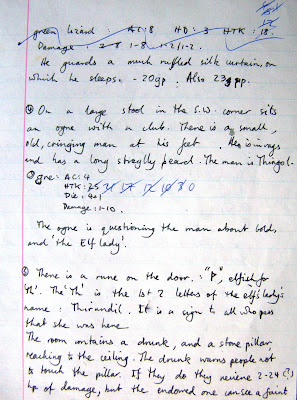 green lizard AC: 8 HD: 3 HTK: 18
Damage: 1-8 1-2/1-2
He guards a much ruffled silk curtain, on
which he sleeps. - 20gp. Also 23 gp.
④ On a large stool in the S.W. corner sits
an ogre with a club. There is a small,
old, cringing man at his feet. He is in rags
and has a long straylly beard. The man is Thingol.
Ogre: AC: 4
HTK: 25
Die: 4+1
Damage: 1-10.
The ogre is questioning the man about Lolds,
and 'the Elf lady'.
There is a rune on the door. : "P", elfish for
'th'. The 'Th' is the 1st 2 letters of the elf's lady's
name: Thirandil. It is a sign to all who pass
that she was here
The room contains a drunk, and a stone pillar
reaching to the ceiling. The drunk warns people not
to touch the pillar. If they do they recieve 2-24 (?)
h.p of damage, but the endowed one can see a faint